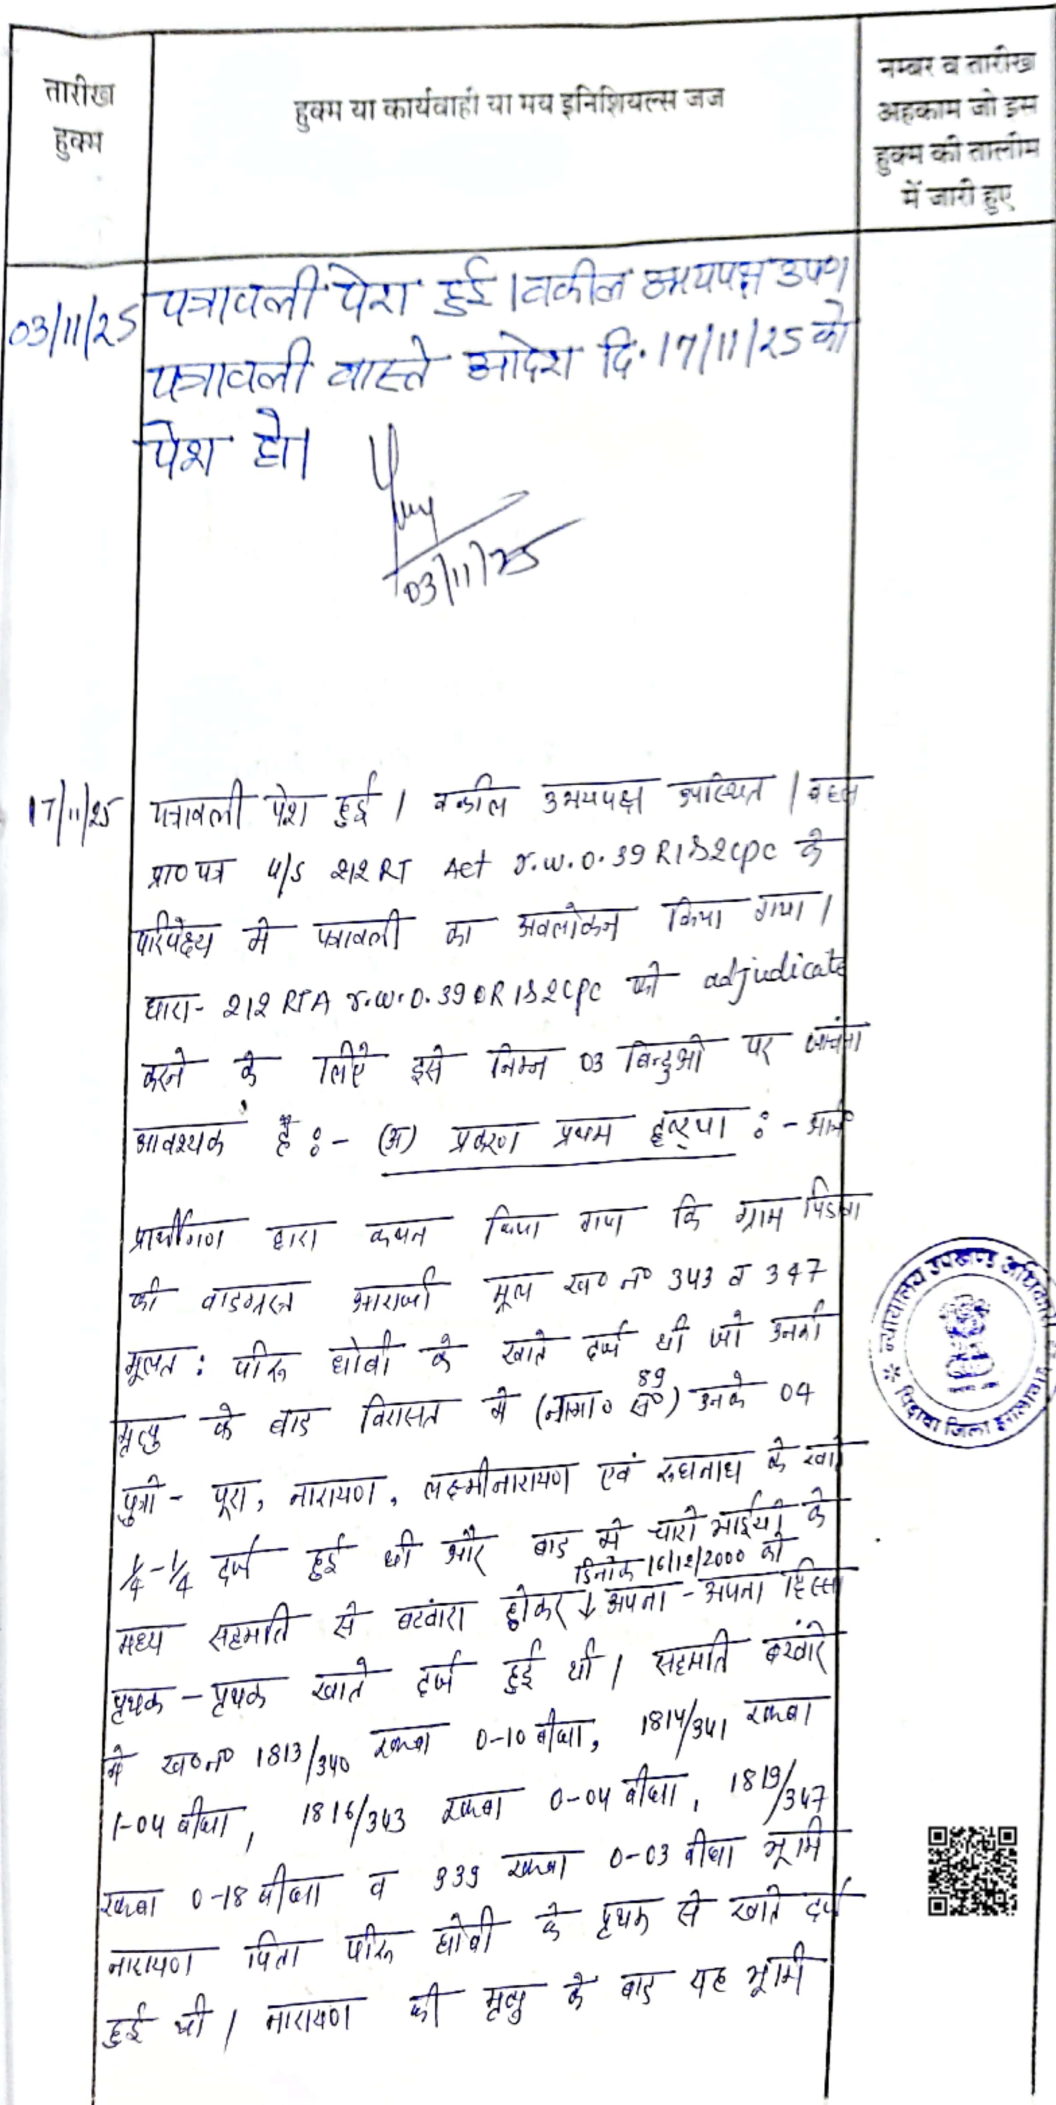 तारीख
हुक्म
हुक्म या कार्यवाही या मय इनिशियल्स जज
नम्बर व तारीख
अहकाम जो इस
हुक्म की तालीम
में जारी हुए
03/11/25 पत्रावली पेश हुई। वकील उभयपक्ष उप०।
पत्रावली वास्ते आदेश दि. 17/11/25 को
पेश हो।
03/11/25
17/11/25 पत्रावली पेश हुई। वकील उभयपक्ष उपस्थित। बहस
प्रा० पत्र u/s 212 RT Act r.w.o. 39 R1&2 cpc के
परिपेक्ष्य मे पत्रावली का अवलोकन किया गया।
धारा- 212 RTA r.w.o. 39 R 1&2 cpc को adjudicate
करने के लिऐ इसे निम्न 03 बिन्दुओ पर जांचना
आवश्यक है :- (अ) प्रकरण प्रथम दृष्टया :-
प्रार्थीगण द्वारा कथन किया गया कि ग्राम पिडावा
की वादग्रस्त आराजी मूल ख० न० 343 व 347
मूलत: पीरू धोबी के खाते दर्ज थी जो उनकी
मृत्यु के बाद विरासत मे (नामा० सं० 89) उनके 04
पुत्रो - पूरा, नारायण, लक्ष्मीनारायण एवं रुघनाथ के खाते
1/4-1/4 दर्ज हुई थी और बाद मे चारो भाईयो के
दिनांक 16/12/2000 को
मध्य सहमति से बटवांरा होकर ↓ अपना - अपना हिस्सा
पृथक - पृथक खाते दर्ज हुई थी। सहमति बटवांरे
मे ख० न० 1813/340 रकबा 0-10 बीघा, 1814/341 रकबा
1-04 बीघा, 1816/343 रकबा 0-04 बीघा, 1819/347
रकबा 0-18 बीघा व 939 रकबा 0-03 बीघा भूमि
नारायण पिता पीरू धोबी के पृथक से खाते दर्ज
हुई थी। नारायण की मृत्यु के बाद यह भूमि
न्यायालय उपखण्ड अधिकारी
पिड़ावा जिला झालावाड़